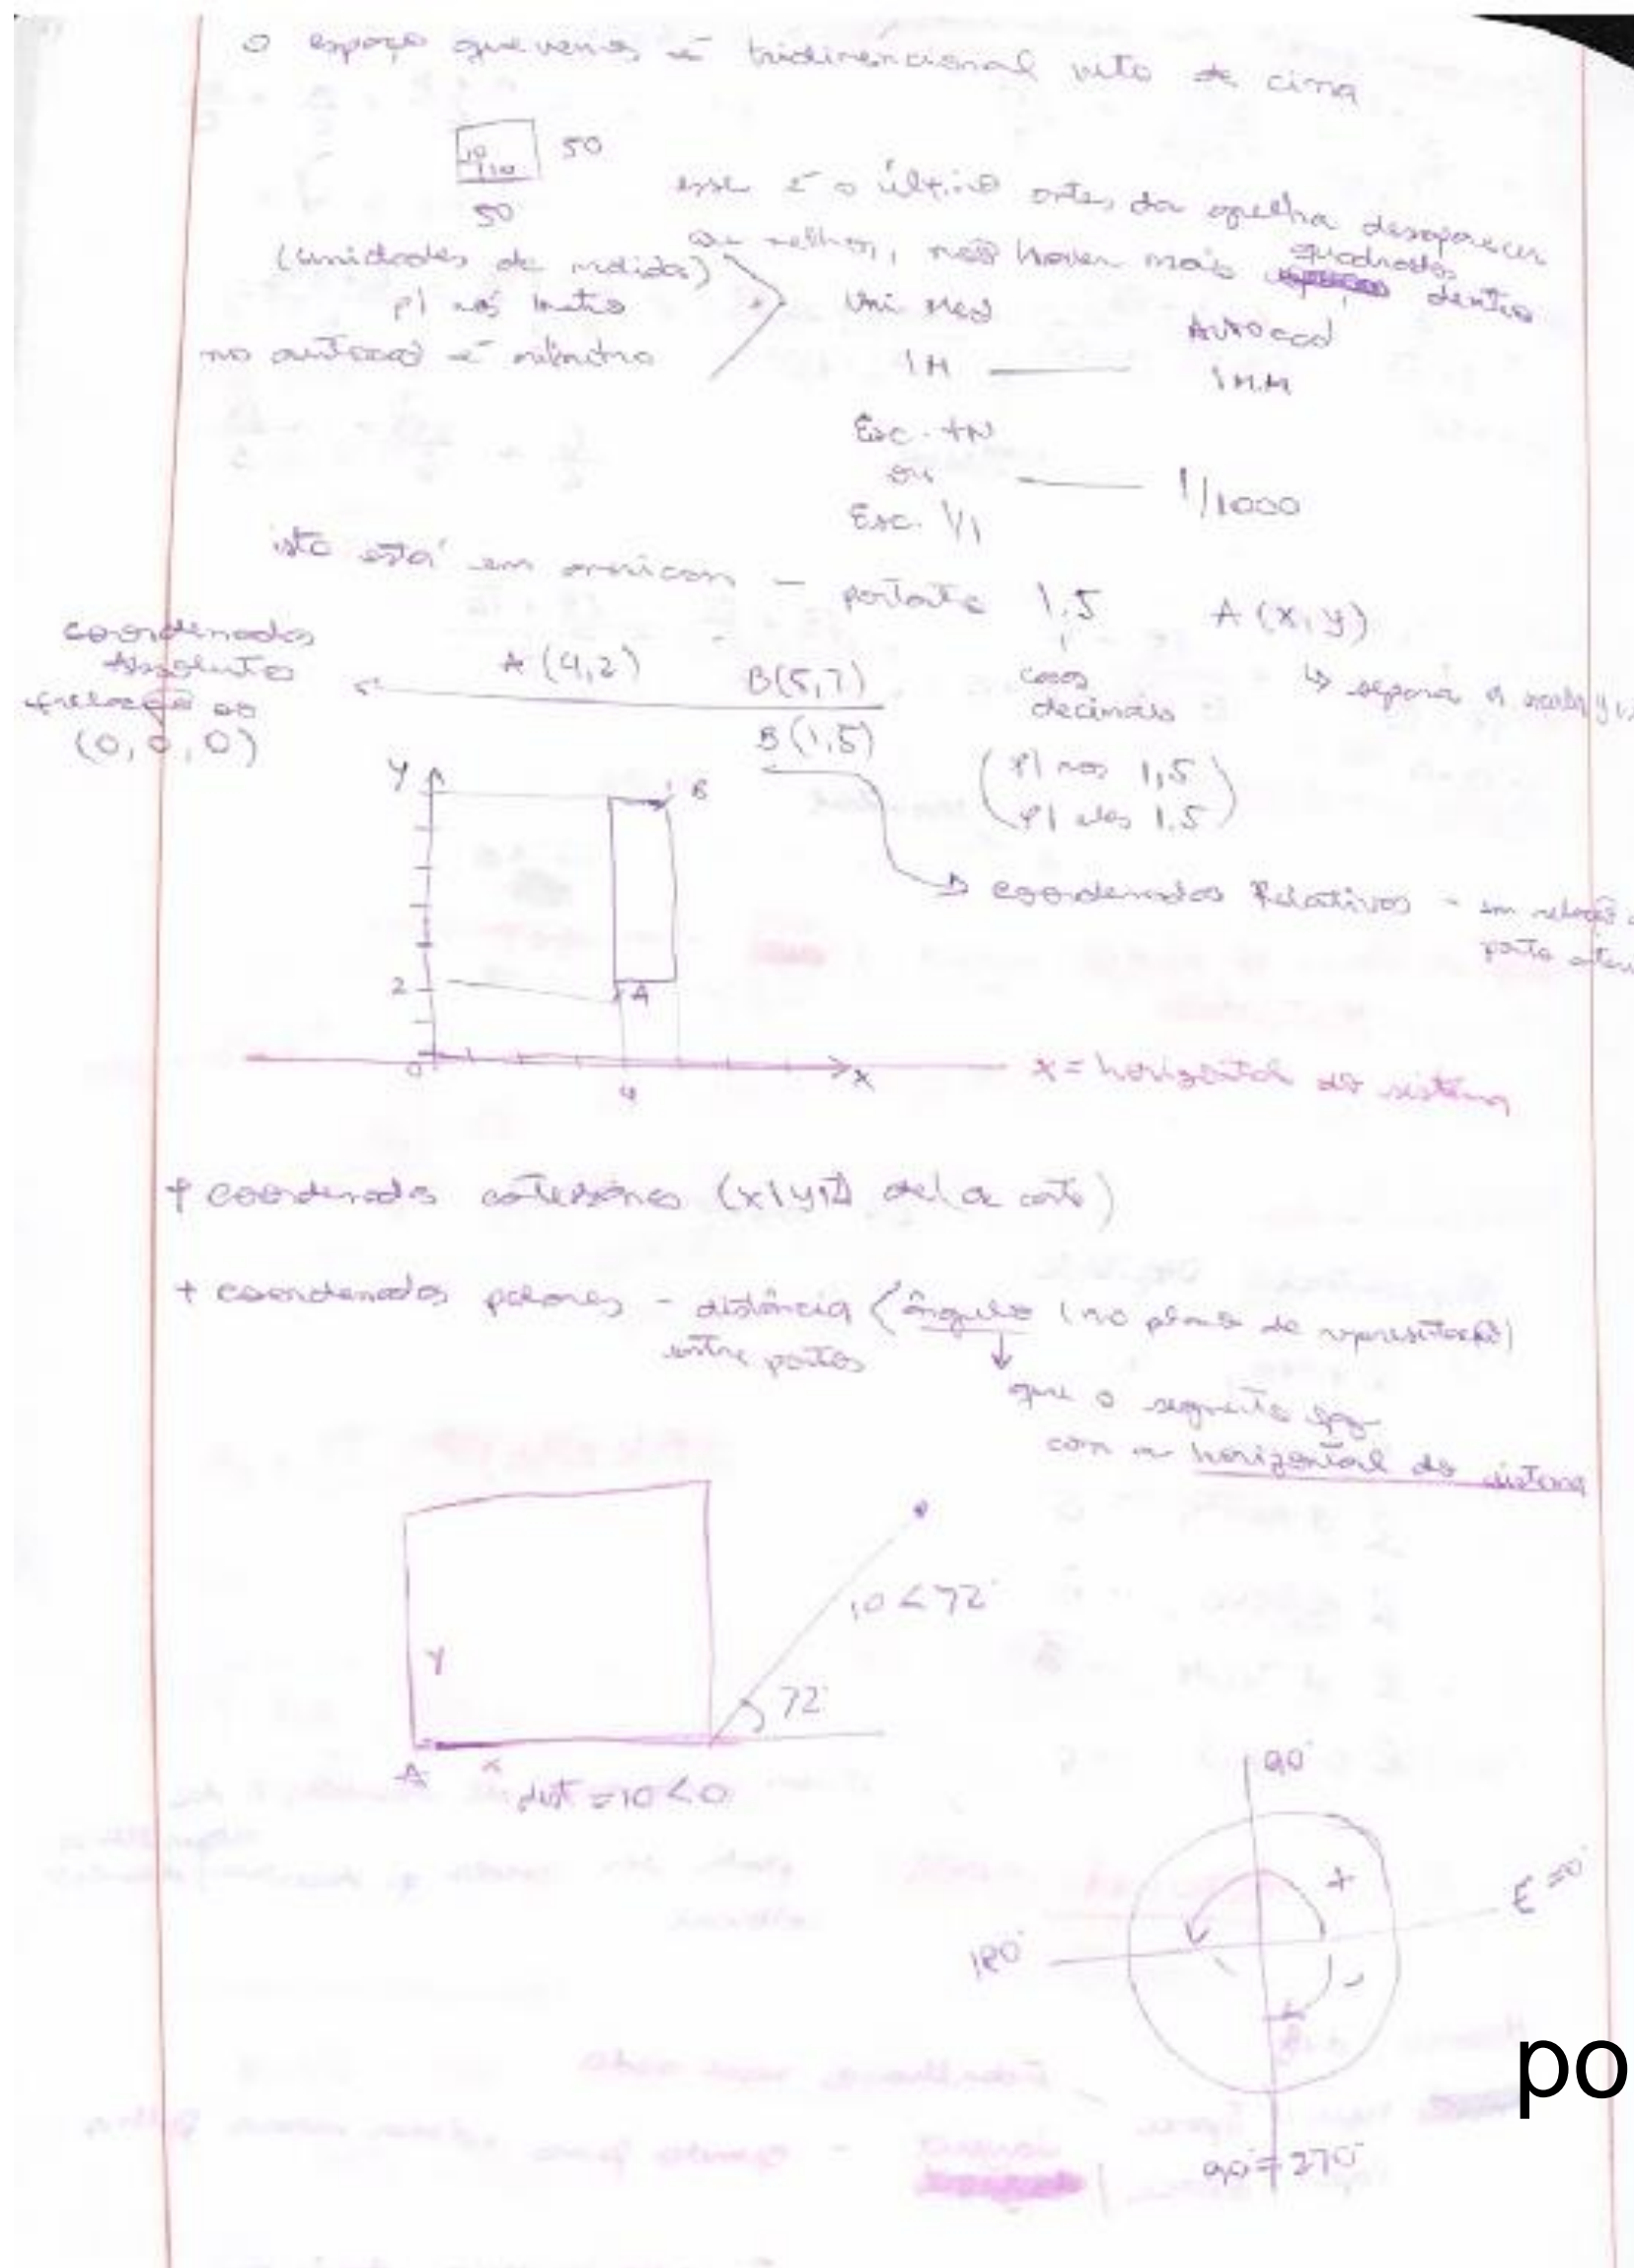 o espaço que vemos é tridimencional visto de cima
50
10
110
50
esse é o último antes da grelha desaparecer
ou melhor, não haver mais quadrados dentro
(unidades de medidas)
p/ nós metro
no autocad é milímetro
Uni Med
Autocad
1M
1MM
Esc. +N
ou
Esc. 1/1
1/1000
isto está em
portanto 1.5
A (x, y)
casas
decimais
↳ separa a
coordenadas
Absolutas
relação ao
(0, 0, 0)
A (4,2)
B(5,7)
B(1,5)
(p/ nós 1,5
p/ eles 1.5)
coordenadas Relativas - em relação
Y
B
2
A
0
4
X
x = horizontal do sistema
+ coordenadas cartesianas (x,y,z
+ coordenadas polares - distância < ângulo (no plano de representação)
entre pontos
que o segmento faz
com a horizontal do sistema
10 < 72°
Y
72°
A
x
dist = 10 < 0
90°
+
E = 0°
180°
-
90 = 270°
po